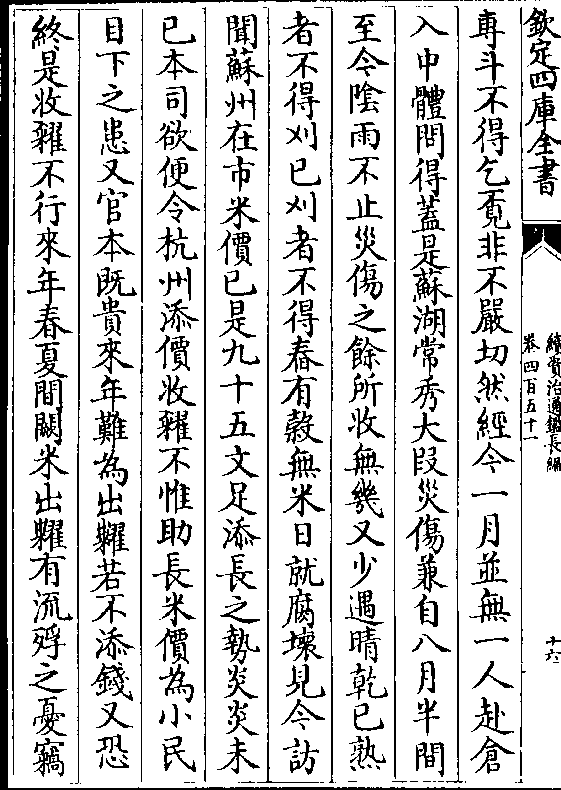 欽定四庫全書
續資治通鑑長編
卷四百五十一
十六
專斗不得乞覔非不嚴切然經今一月並無一人赴倉
入中體問得蓋是蘇湖常秀大段災傷兼自八月半間
至今陰雨不止災傷之餘所收無幾又少遇晴乾已熟
者不得刈已刈者不得舂有榖無米日就腐壞見今訪
聞蘇州在市米價已是九十五文足添長之勢炎炎未
已本司欲便令杭州添價收糴不惟助長米價為小民
目下之患又官本既貴來年難為出糶若不添錢又恐
終是收糴不行來年春夏間闕米出糶有流殍之憂竊